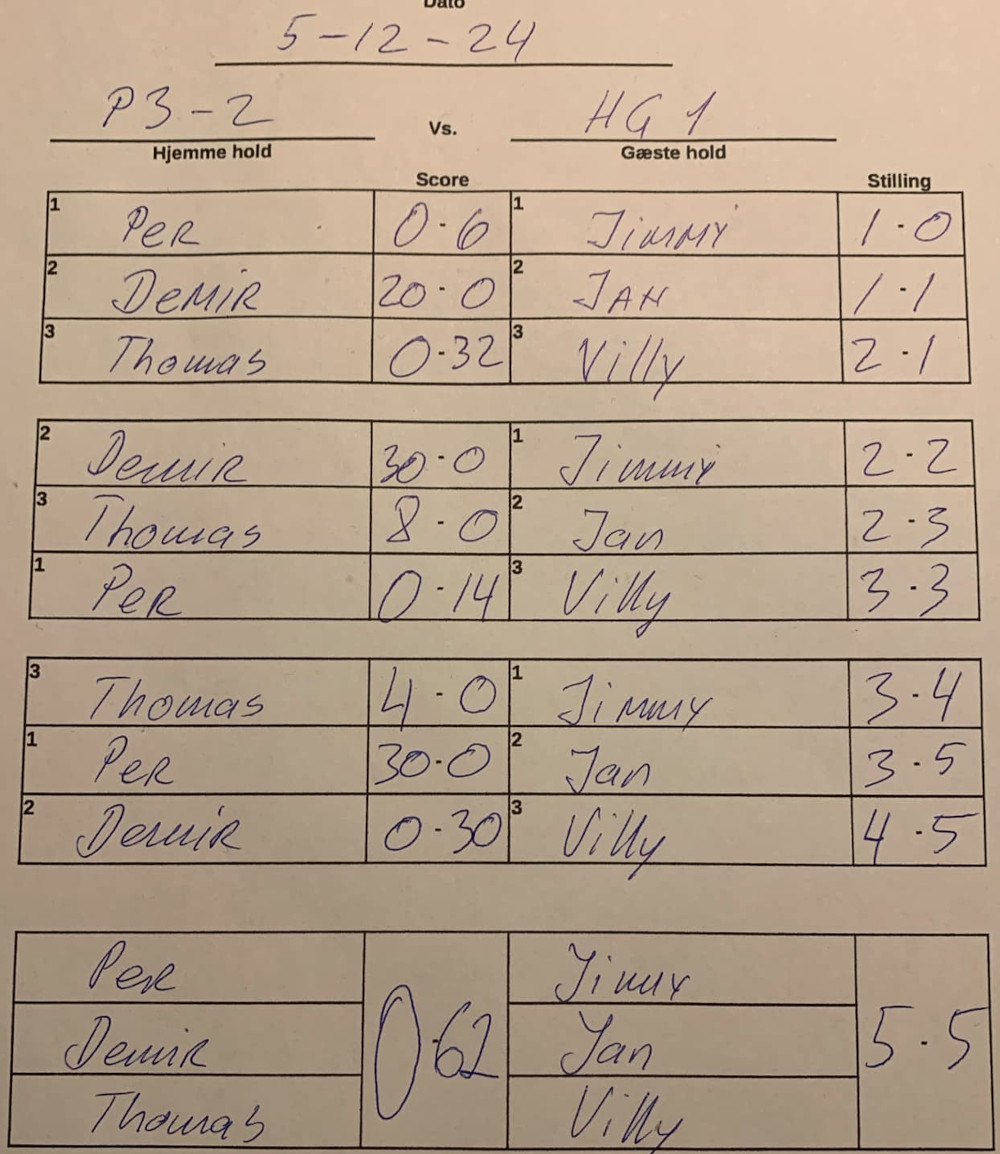 Dato
5-12-24
P3-2 Vs. HG 1
Hjemme hold Gæste hold
Score Stilling
1 Per 0-6 1 Jimmy 1-0
2 Demir 20-0 2 Jan 1-1
3 Thomas 0-32 3 Villy 2-1
2 Demir 30-0 1 Jimmy 2-2
3 Thomas 8-0 2 Jan 2-3
1 Per 0-14 3 Villy 3-3
3 Thomas 4-0 1 Jimmy 3-4
1 Per 30-0 2 Jan 3-5
2 Demir 0-30 3 Villy 4-5
Per Jimmy
Demir 0-62 Jan 5-5
Thomas Villy